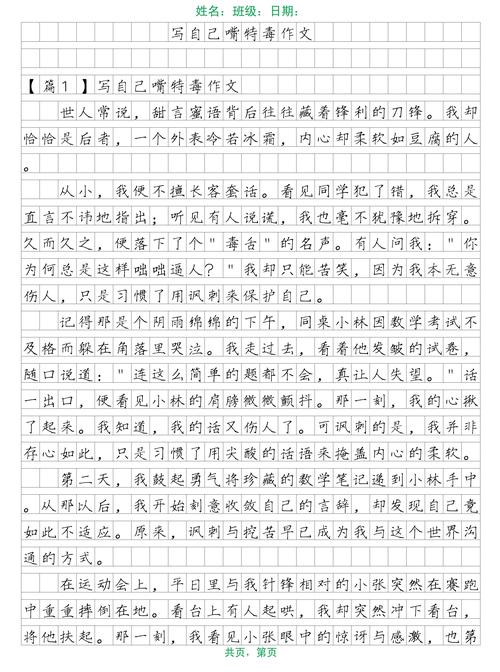 姓名：班级：日期：
写自己嘴特毒作文
【篇1】写自己嘴特毒作文
世人常说，甜言蜜语背后往往藏着锋利的刀锋。我却
恰恰是后者，一个外表冷若冰霜，内心却柔软如豆腐的人
。
从小，我便不擅长客套话。看见同学犯了错，我总是
直言不讳地指出；听见有人说谎，我也毫不犹豫地拆穿。
久而久之，便落下了个"毒舌"的名声。有人问我："你
为何总是这样咄咄逼人？"我却只能苦笑，因为我本无意
伤人，只是习惯了用讽刺来保护自己。
记得那是个阴雨绵绵的下午，同桌小林因数学考试不
及格而躲在角落里哭泣。我走过去，看着他发皱的试卷，
随口说道："连这么简单的题都不会，真让人失望。"话
一出口，便看见小林的肩膀微微颤抖。那一刻，我的心揪
了起来。我知道，我的话又伤人了。可讽刺的是，我并非
存心如此，只是习惯了用尖酸的话语来掩盖内心的柔软。
第二天，我鼓起勇气将珍藏的数学笔记递到小林手中
。从那以后，我开始刻意收敛自己的言辞，却发现自己竟
如此不适应。原来，讽刺与挖苦早已成为我与这个世界沟
通的方式。
在运动会上，平日里与我针锋相对的小张突然在赛跑
中重重摔倒在地。看台上有人起哄，我却突然冲下看台，
将他扶起。那一刻，我看见小张眼中的惊讶与感激，也第
共页，第页